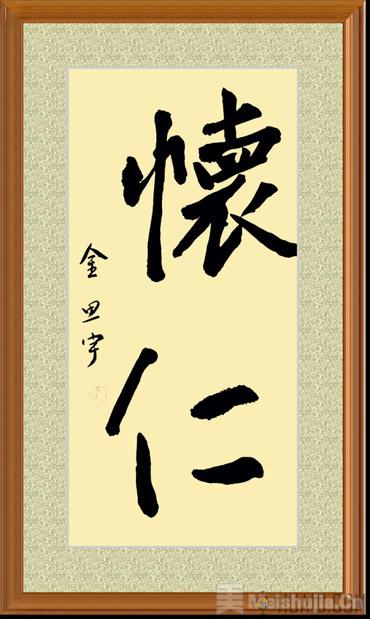 懷仁
金思宇
Meishujia.Cn